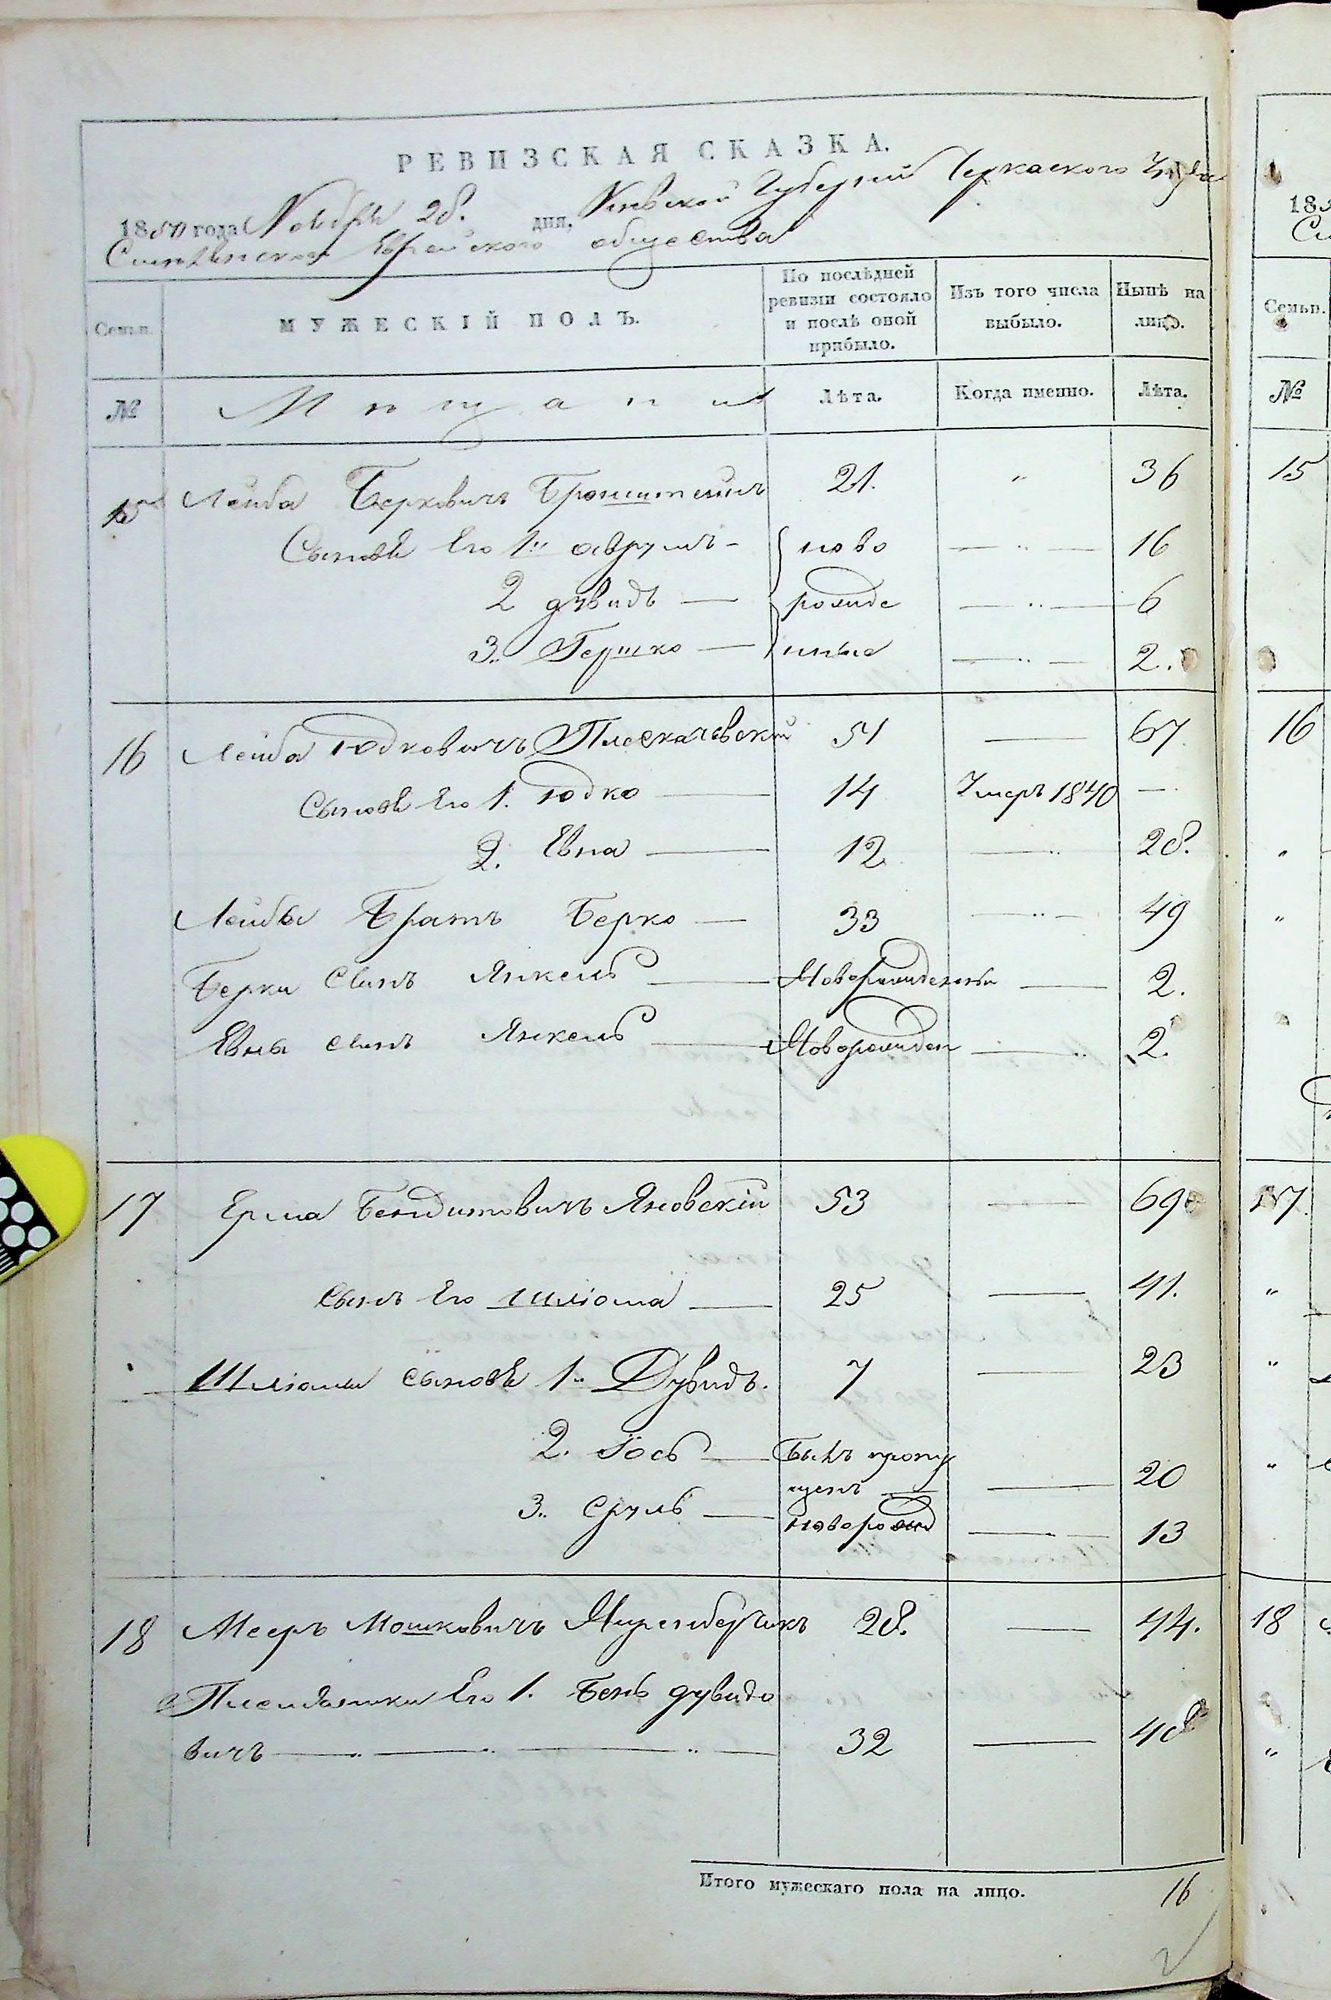 РЕВИЗСКАЯ СКАЗКА.
1850 года Ноября 28. дня, Киевской Губерніи Черкаского Уѣзда
Смѣлянского Еврейского общества
Семьи. МУЖЕСКІЙ ПОЛЪ. По послѣдней ревизіи состояло и послѣ оной прибыло. Изъ того числа выбыло. Нынѣ на лицо.
№ Мѣщани Лѣта. Когда именно. Лѣта.
15 Лейба Берковичъ Бронштейнъ 21. " 36
Сыновя Его 1й аврумъ - ново — " — 16
2 дувидъ — рожде — " — 6
3. Гершко — нные — " — 2.
16 Лейба Юдковичъ Плескачевскій 51 — 67
Сыновя Его 1. Юдко — 14 Умеръ 1840 —
2. Евна — 12 — 28.
Лейбы Братъ Берко — 33 — " — 49
Берки Сынъ Янкель — Новорожденны — 2.
Евны сынъ Янкель — Новорожден — " 2.
17 Ерма Бендитовичъ Яновскій 53 — 69
Сынъ Его Шліома — 25 — 41.
Шліомы Сыновя 1й Дувидъ. 7 — 23
2. Іось — былъ пропу
щенъ — 20
3. Сруль — новорожд — 13
18 Мееръ Мошковичъ Миренберчикъ 28. — 44.
Племяники Его 1. Бень дувидо
вичъ — " — " — " — 32 — 48
Итого мужескаго пола на лицо. 16
185
См
Семьи.
№
15
16
"
"
17
"
"
"
18
"